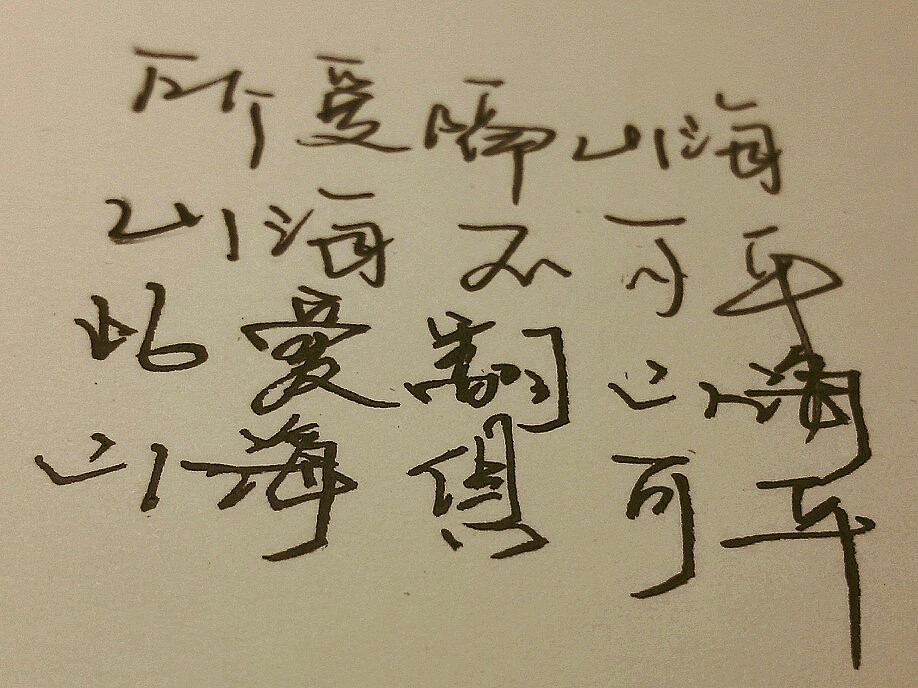 所爱隔山海
山海不可平
此爱翻山海
山海俱可平